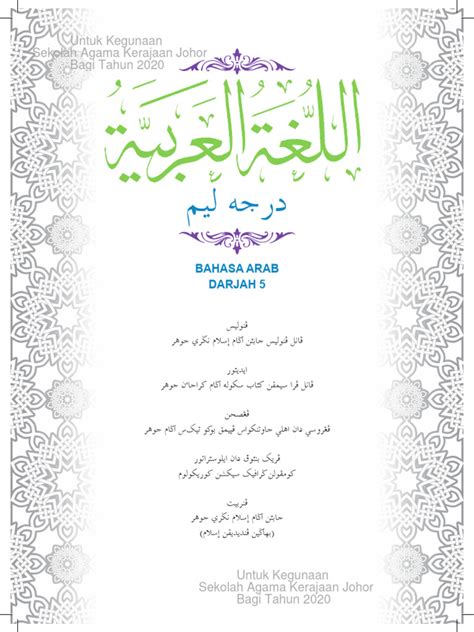 Untuk Kegunaan
Sekolah Agama Kerajaan Johor
Bagi Tahun 2020
اللُّغَةُ العَرَبِيَّةُ
درجه ليم
BAHASA ARAB
DARJAH 5
ڤنوليس
ڤانل ڤنوليس جابتن اݢام إسلام نݢري جوهر
ايديتور
ڤانل ڤرا سيمڤن كتاب سكوله اݢام كراجاٴن جوهر
ڤڠصحن
ڤڠروسي دان اهلي جاوتنكواس ڤڽيمق بوكو تيک‌س اݢام جوهر
ڤريک بنتوق دان ايلوستراتور
كومڤولن ݢرافيک سيكشن كوريكولوم
ڤنربيت
جابتن اݢام إسلام نݢري جوهر
(بهاݢين ڤنديديقن إسلام)
Untuk Kegunaan
Sekolah Agama Kerajaan Johor
Bagi Tahun 2020